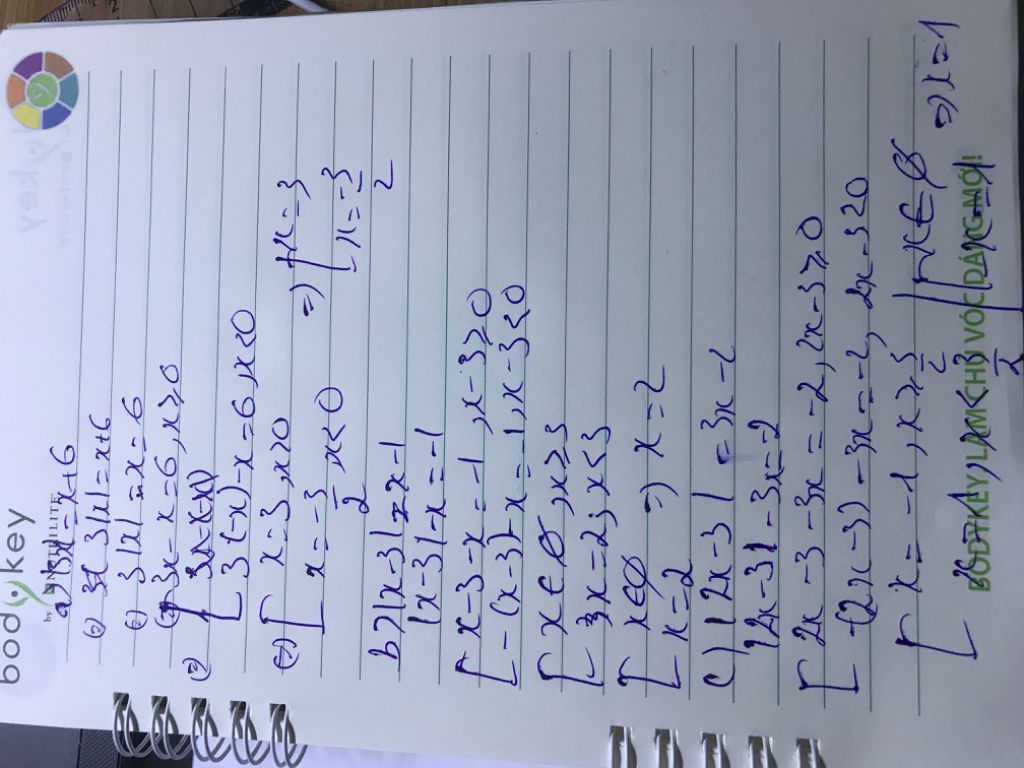 bodykey
by NUTRILITE
a) |3x| = x+6
(=) 3|x| = x+6
(=) 3|x| - x = 6
3x - x = 6, x ≥ 0
3(-x) - x = 6, x < 0
(=) [ x = 3, x ≥ 0
x = -3/2, x < 0 => [ x = 3
x = -3/2
b) |x-3| = x-1
|x-3| - x = -1
[ x-3-x = -1, x-3 ≥ 0
-(x-3) - x = -1, x-3 < 0
[ x ∈ ∅, x ≥ 3
x = 2, x < 3
[ x ∈ ∅
x = 2 => x = 2
c) |2x-3| = 3x-2
|2x-3| - 3x = -2
[ 2x-3-3x = -2, 2x-3 ≥ 0
-(2x-3) - 3x = -2, 2x-3 < 0
[ x = -1, x ≥ 3/2 [ x ∈ ∅
x = 1, x < 3/2 x = 1 => x = 1
BODYKEY, LÀM CHỦ VÓC DÁNG MỚI!